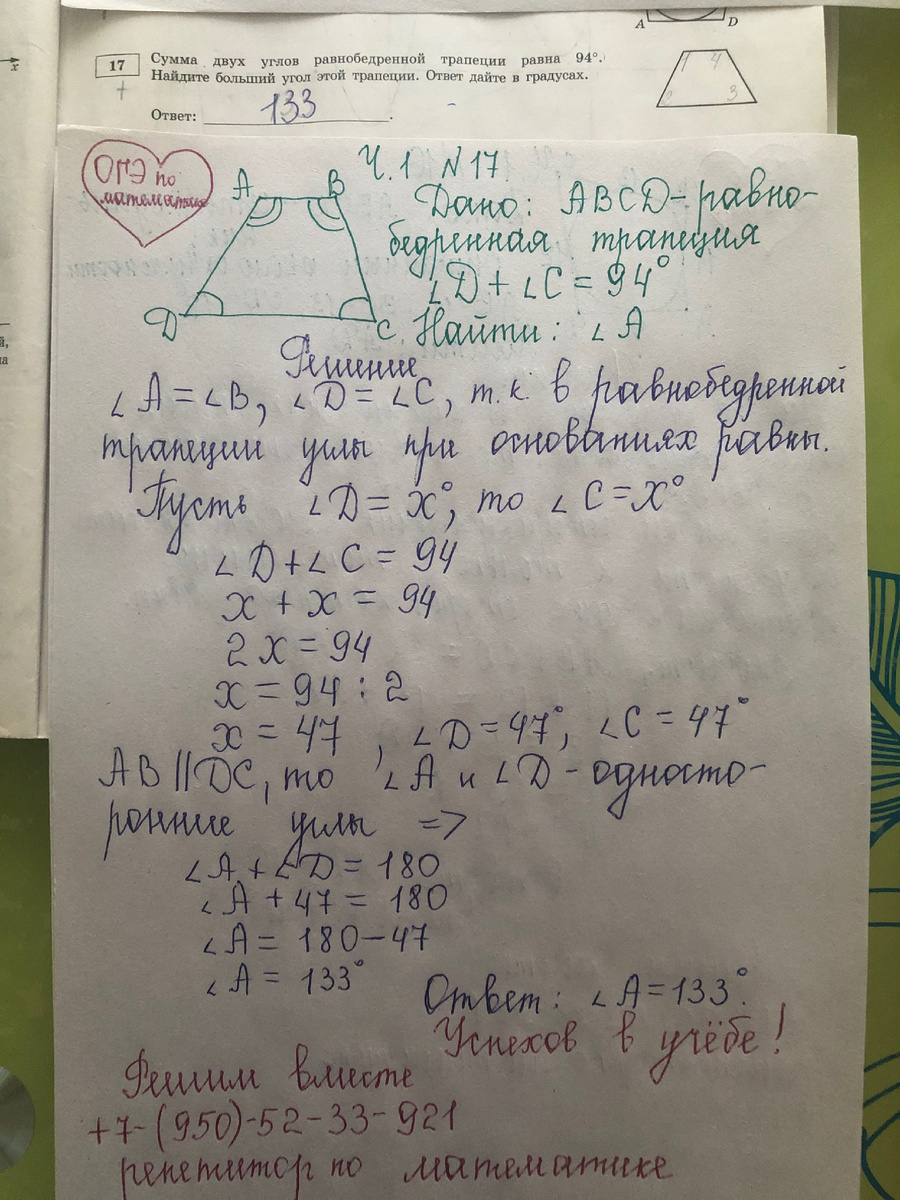 A D
x
17
Сумма двух углов равнобедренной трапеции равна 94°.
Найдите больший угол этой трапеции. Ответ дайте в градусах.
+
1 4
3
Ответ: 133.
ОГЭ по
математике
Ч.1 N17
A B
Дано: ABCD-равно-
бедренная трапеция
∠D+∠C=94°
D C
Найти: ∠A
Решение
∠A=∠B, ∠D=∠C, т.к. в равнобедренной
трапеции углы при основаниях равны.
Пусть ∠D=x°, то ∠C=x°
∠D+∠C=94
x+x=94
2x=94
x=94:2
x=47, ∠D=47°, ∠C=47°
AB||DC, то ∠A и ∠D-односто-
ронние углы =>
∠A+∠D=180
∠A+47=180
∠A=180-47
∠A=133°
Ответ: ∠A=133°.
Успехов в учёбе!
Решим вместе
+7-(950)-52-33-921
репетитор по математике